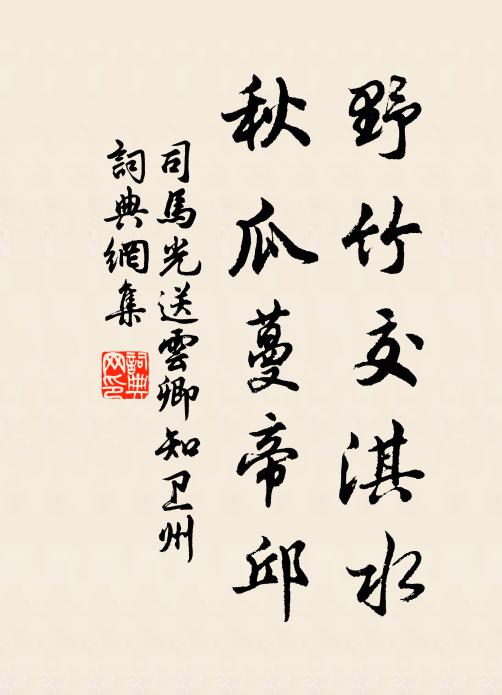 野竹交淇水
秋瓜蔓帝邱
司馬光送雲卿知卫州
詞典網集
詞典
网印